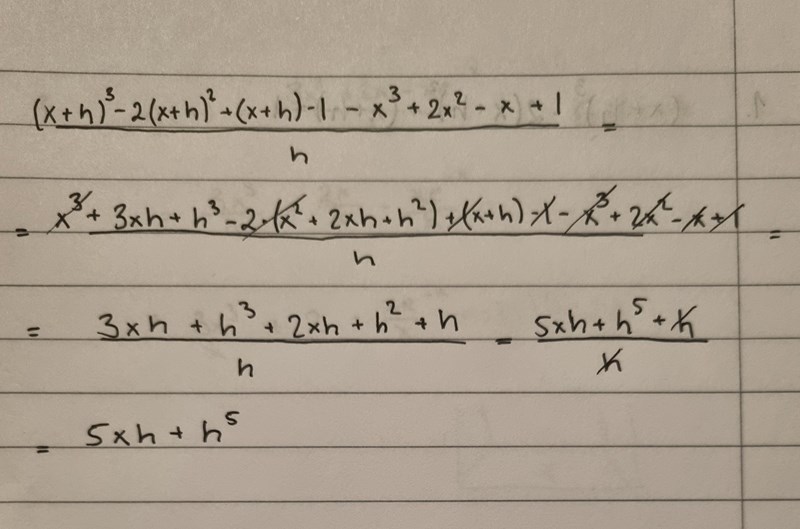 ((x+h)³ - 2(x+h)² + (x+h) - 1 - x³ + 2x² - x + 1)/h =
= (x³ + 3xh + h³ - 2·(x² + 2xh + h²) + (x+h) - 1 - x³ + 2x² - x + 1)/h =
= (3xh + h³ + 2xh + h² + h)/h = (5xh + h⁵ + h)/h
= 5xh + h⁵